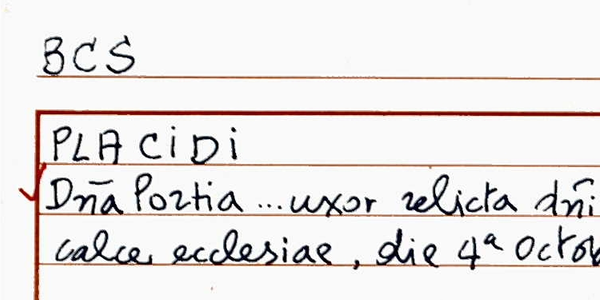 BCS
PLACIDI
Dña Portia ... uxor relicta dñi
calce ecclesiae, die 4ª Octob